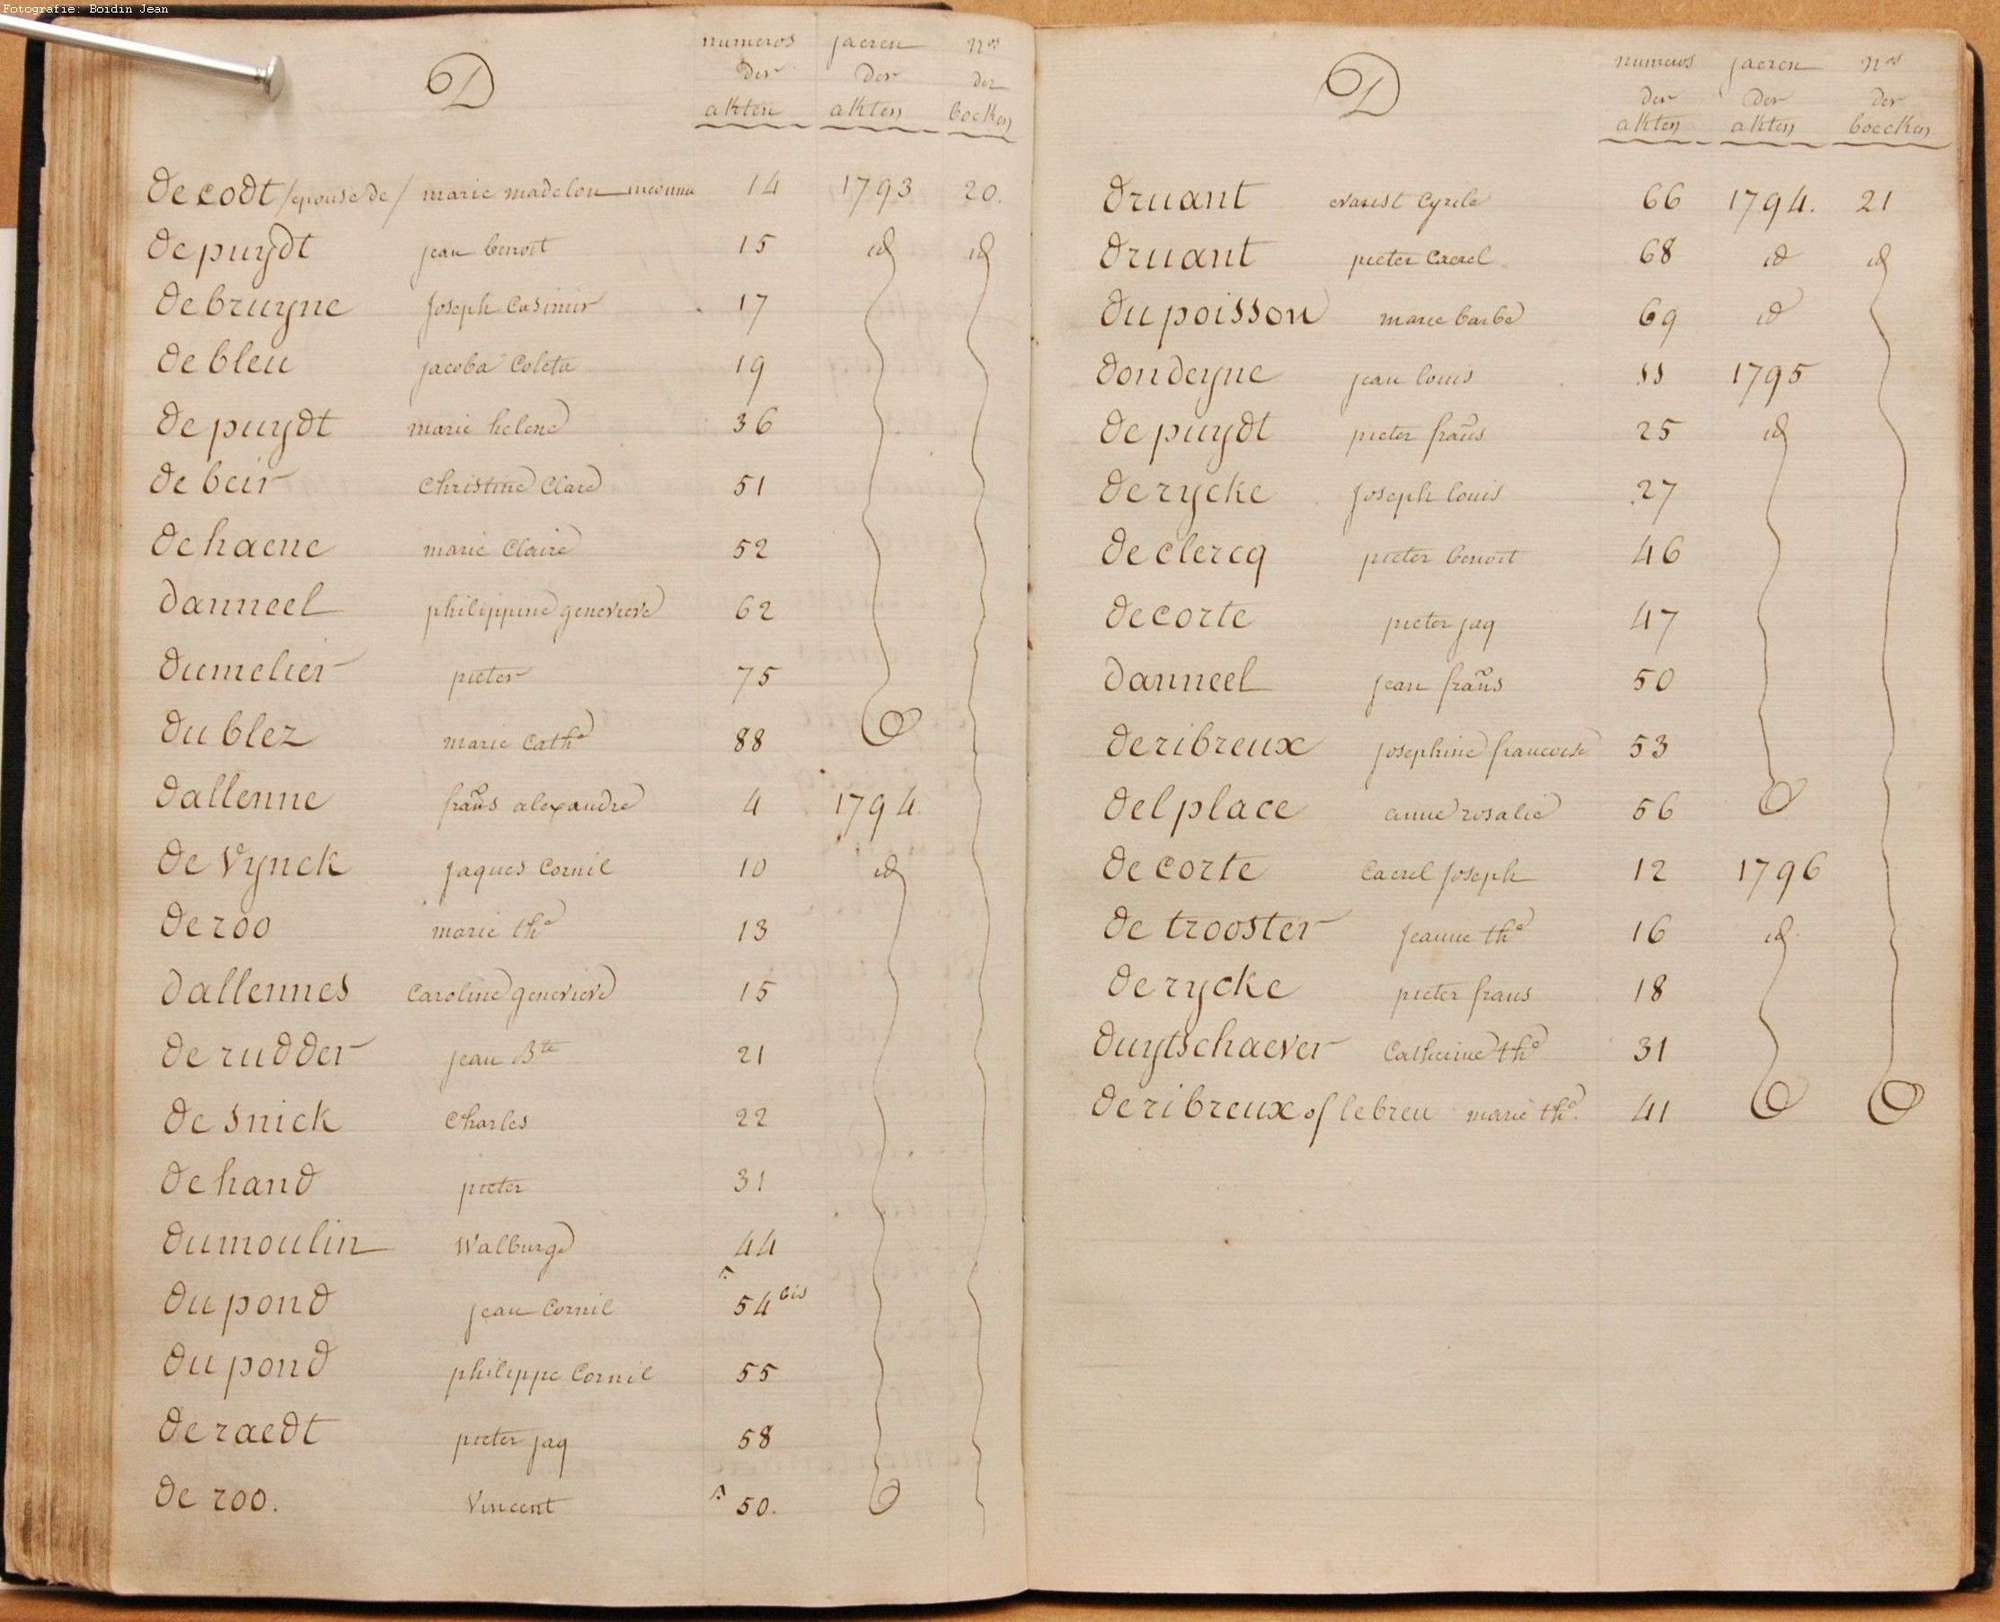 Fotografie: Boidin Jean
D numeros der akten jaeren der akten nos der boeken
de codt /epouse de/ marie madelon inconnu 14 1793 20.
de puydt jean benoit 15 id id
de bruyne joseph Casimir 17
de bleu jacoba Coleta 19
de puydt marie helene 36
de beir Christine Clare 51
de haene marie Claire 52
danneel philippine genevieve 62
dumelier pieter 75
du blez marie Cathe 88
dallenne frans alexandre 4 1794.
de Vynck Jaques Cornil 10 id
de roo marie the 13
dallennes Caroline genevieve 15
de rudder jean Bte 21
de snick Charles 22
de hand pieter 31
dumoulin Walburge 44
du pond jean Cornil 54 bis
du pond philippe Cornil 55
de raedt pieter jaq 58
de roo. Vincent 50.
D numeros der akten jaeren der akten nos der boecken
druant evarist Cyrile 66 1794. 21
druant pieter Caerel 68 id id
du poisson marie barbe 69 id
dondeyne jean louis 11 1795
de puydt pieter frans 25 id
de rycke joseph louis 27
de clercq pieter benoit 46
de corte pieter jaq 47
danneel jean frans 50
de ribreux josephine francoise 53
delplace anne rosalie 56
de corte Caerel joseph 12 1796
de trooster Jeanne the 16 id
de rycke pieter frans 18
duytschaever Catherine the 31
de ribreux of lebreu marie the. 41